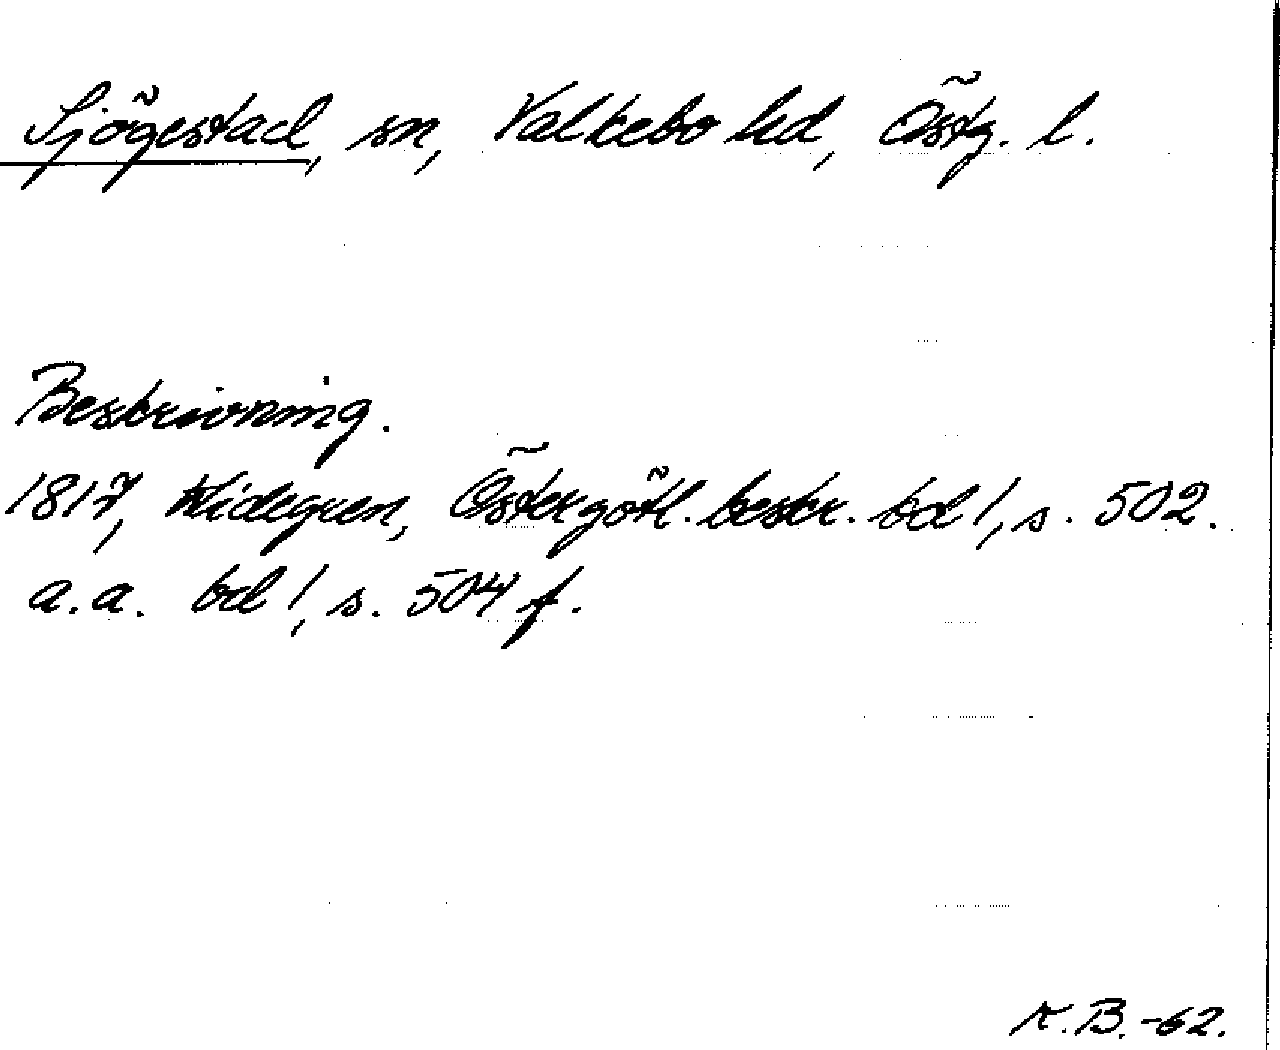 Sjögestad, sn, Valkebo hd, Östg. l.
Beskrivning.
1817, Widegren, Östergötl. beskr. bd 1, s. 502.
a.a. bd 1, s. 504 f.
K.B.-62.